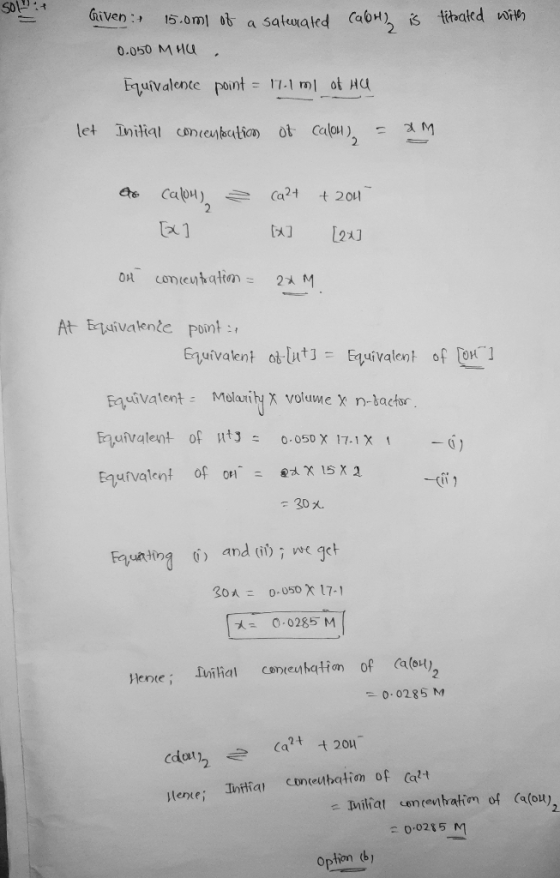 Solⁿ :→
Given :→ 15.0ml of a saturated Ca(OH)₂ is titrated with
0.050 M HCl .
Equivalence point = 17.1 ml of HCl
let Initial concentration of Ca(OH)₂ = x M
Ca(OH)₂ ⇌ Ca2+ + 2OH⁻
[x] [x] [2x]
OH⁻ concentration = 2x M.
At Equivalence point :→
Equivalent of [H+] = Equivalent of [OH⁻]
Equivalent = Molarity X volume X n-factor.
Equivalent of H+ = 0.050 X 17.1 X 1 —(i)
Equivalent of OH⁻ = x X 15 X 2 —(ii)
= 30x
Equating (i) and (ii) ; we get
30x = 0.050 X 17.1
x = 0.0285 M
Hence ; Initial concentration of Ca(OH)₂
= 0.0285 M
Ca(OH)₂ ⇌ Ca2+ + 2OH⁻
Hence; Initial concentration of Ca2+
= Initial concentration of Ca(OH)₂
= 0.0285 M
Option (b)